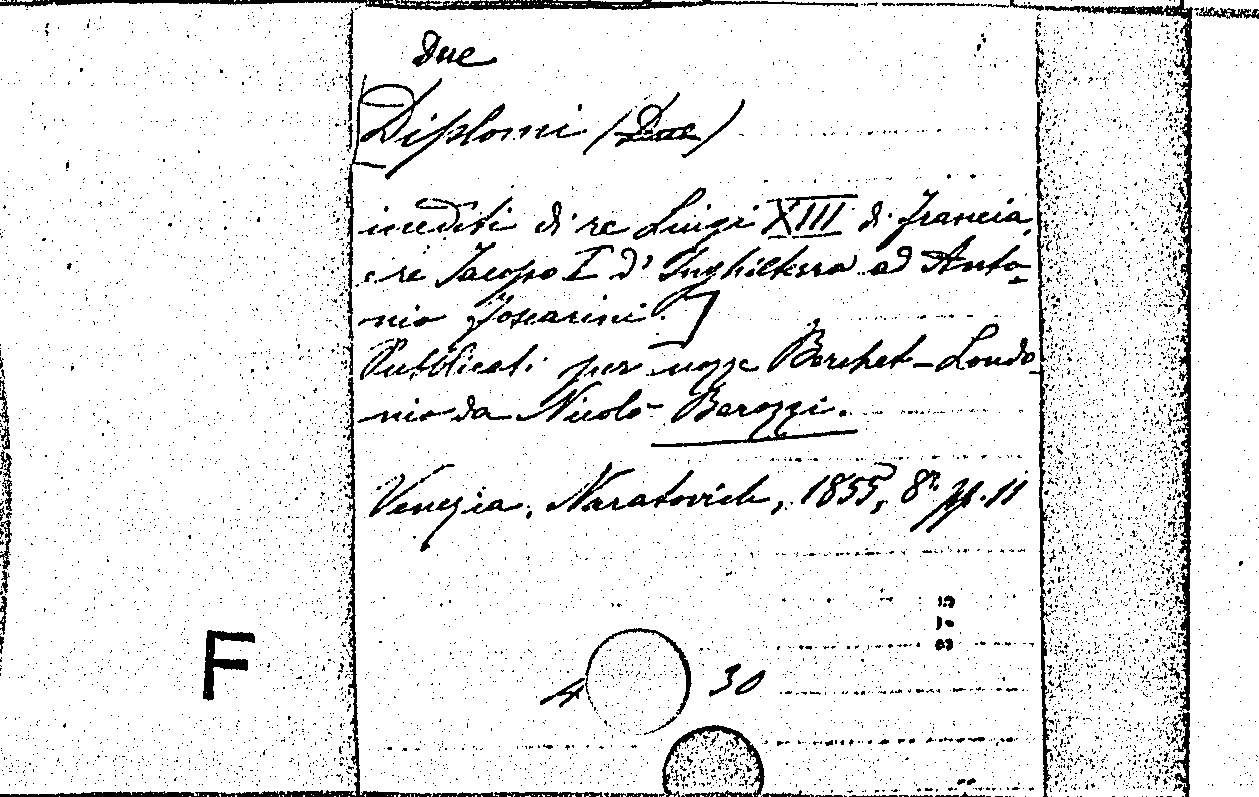 Due
Diplomi (Due)
inediti di re Luigi XIII di Francia,
e re Jacopo I d'Inghilterra ad Anto-
nio Foscarini.]
Pubblicati per nozze Berchet-Londo-
nio da Nicolò Barozzi.
Venezia, Naratovich, 1855, 8º, pp. 11
F
4 30